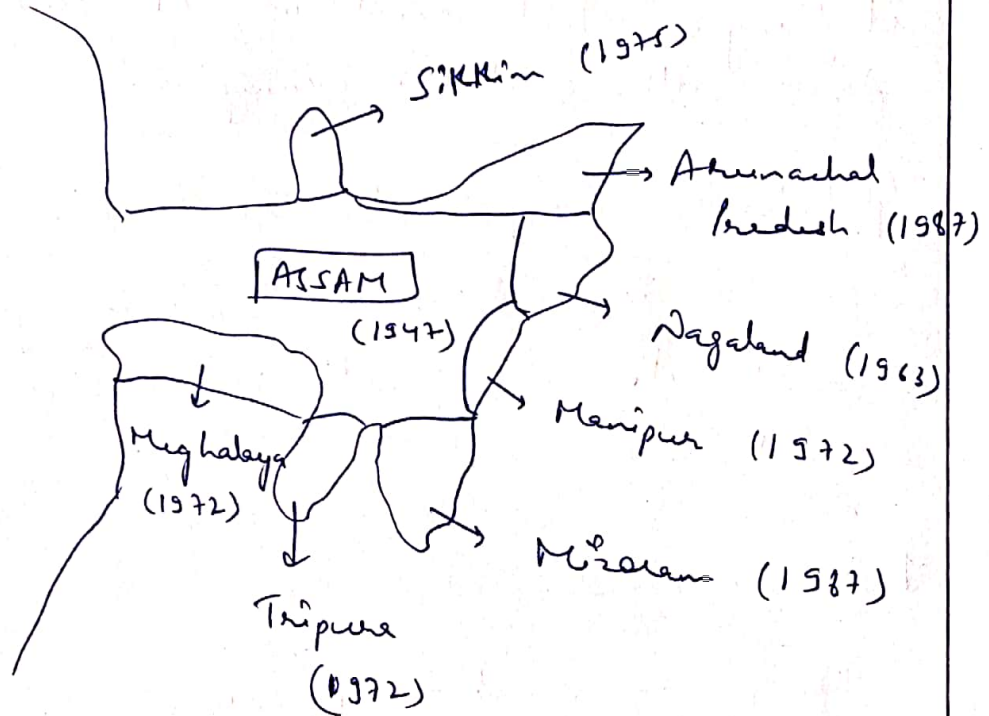 Sikkim (1975)
Arunachal
Pradesh (1987)
ASSAM
(1947)
Nagaland (1963)
Manipur (1972)
Meghalaya
(1972)
Mizoram (1987)
Tripura
(1972)